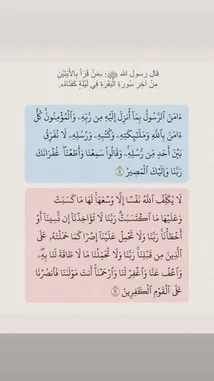 قال رسول الله ﷺ: ‏«مَنْ قَرَأَ بِالْآيَتَيْنِ
مِنْ آخِرِ سُورَةِ الْبَقَرَةِ فِي لَيْلَةٍ كَفَتَاهُ».
ءَامَنَ ٱلرَّسُولُ بِمَآ أُنزِلَ إِلَيْهِ مِن رَّبِّهِۦ وَٱلْمُؤْمِنُونَۚ كُلٌّ
ءَامَنَ بِٱللَّهِ وَمَلَٰٓئِكَتِهِۦ وَكُتُبِهِۦ وَرُسُلِهِۦ لَا نُفَرِّقُ
بَيْنَ أَحَدٍ مِّن رُّسُلِهِۦۚ وَقَالُوا۟ سَمِعْنَا وَأَطَعْنَاۖ غُفْرَانَكَ
رَبَّنَا وَإِلَيْكَ ٱلْمَصِيرُ
لَا يُكَلِّفُ ٱللَّهُ نَفْسًا إِلَّا وُسْعَهَاۚ لَهَا مَا كَسَبَتْ
وَعَلَيْهَا مَا ٱكْتَسَبَتْۗ رَبَّنَا لَا تُؤَاخِذْنَآ إِن نَّسِينَآ أَوْ
أَخْطَأْنَاۚ رَبَّنَا وَلَا تَحْمِلْ عَلَيْنَآ إِصْرًا كَمَا حَمَلْتَهُۥ عَلَى
ٱلَّذِينَ مِن قَبْلِنَاۚ رَبَّنَا وَلَا تُحَمِّلْنَا مَا لَا طَاقَةَ لَنَا بِهِۦۖ
وَٱعْفُ عَنَّا وَٱغْفِرْ لَنَا وَٱرْحَمْنَآۚ أَنتَ مَوْلَىٰنَا فَٱنصُرْنَا
عَلَى ٱلْقَوْمِ ٱلْكَٰفِرِينَ